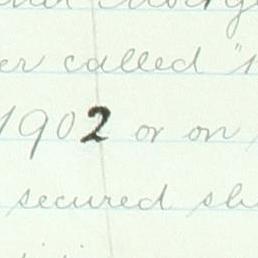 er called "
1902 or on
secured sh